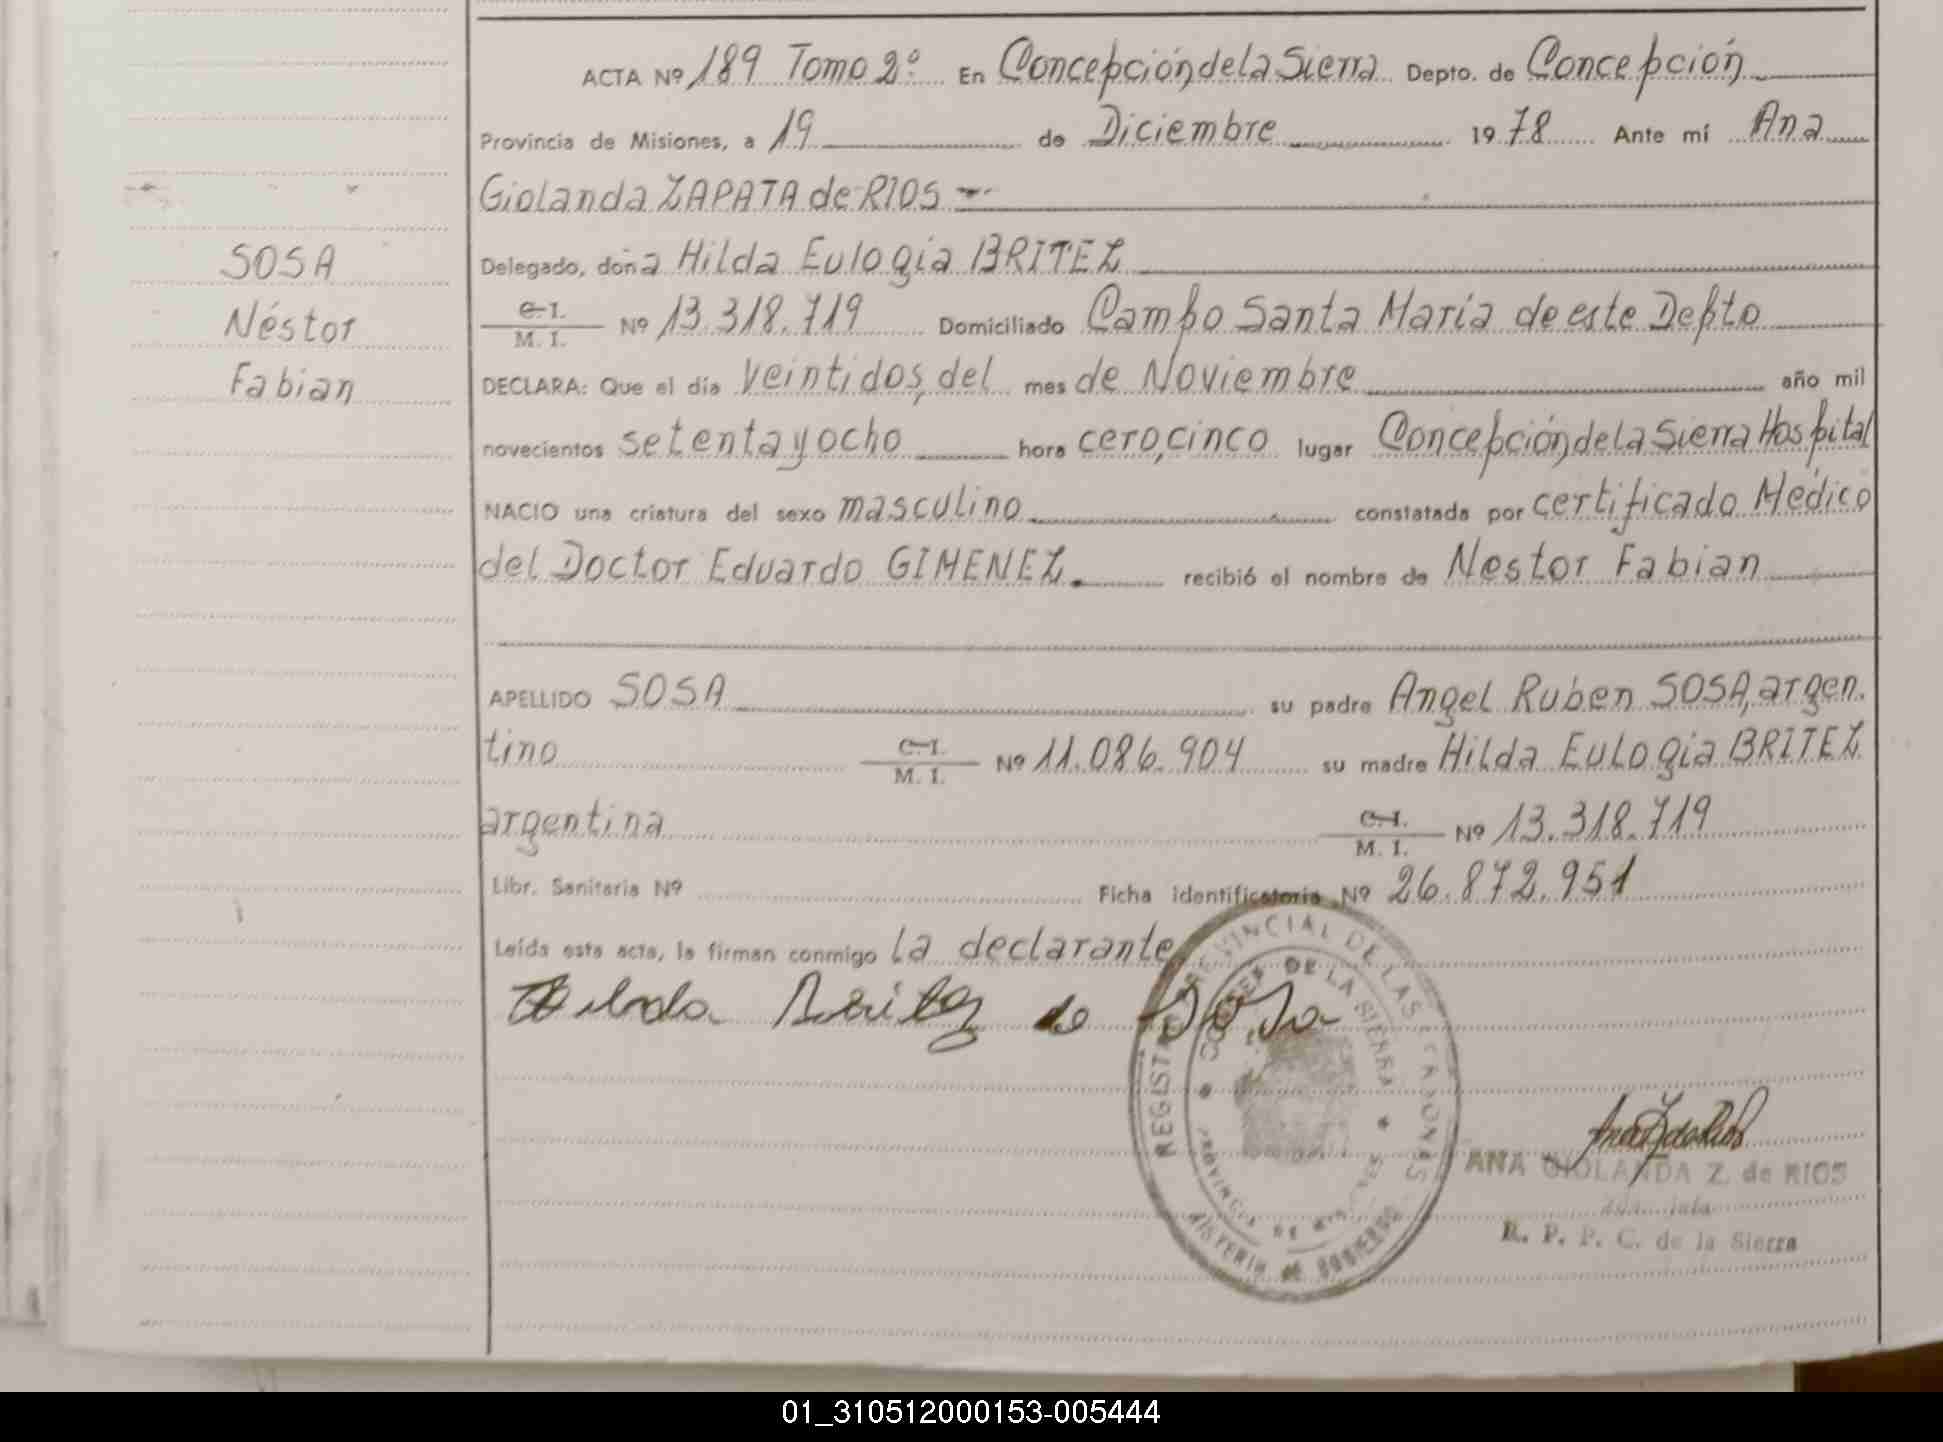 ACTA Nº 189 Tomo 2º En Concepción de la Sierra Depto. de Concepción
Provincia de Misiones, a 19 de Diciembre 1978 Ante mí Ana
Giolanda ZAPATA de RIOS
Delegado, doña Hilda Eulogia BRITEZ
C.I.
M. I. Nº 13.318.719 Domiciliado Campo Santa María de este Depto
DECLARA: Que el día veintidos, del mes de Noviembre año mil
novecientos setenta y ocho hora cero, cinco lugar Concepción, de la Sierra Hospital
NACIO una criatura del sexo masculino constatada por certificado Médico
del Doctor Eduardo GIMENEZ. recibió el nombre de Nestor Fabian
SOSA
Néstor
Fabian
APELLIDO SOSA su padre Angel Ruben SOSA, argen.
tino C.I.
M. I. Nº 11.086.904 su madre Hilda Eulogia BRITEZ
argentina C.I.
M. I. Nº 13.318.719
Libr. Sanitaria Nº Ficha identificatoria Nº 26.872.951
Leída esta acta, la firman conmigo la declarante
Hilda Britez de Sosa
REGISTRO PROVINCIAL DE LAS PERSONAS
CONCEP. DE LA SIERRA
PROVINCIA DE MIS
MINISTERIO DE GOBIERNO
ANA GIOLANDA Z. de RIOS
R. P. P. C. de la Sierra
01_310512000153-005444